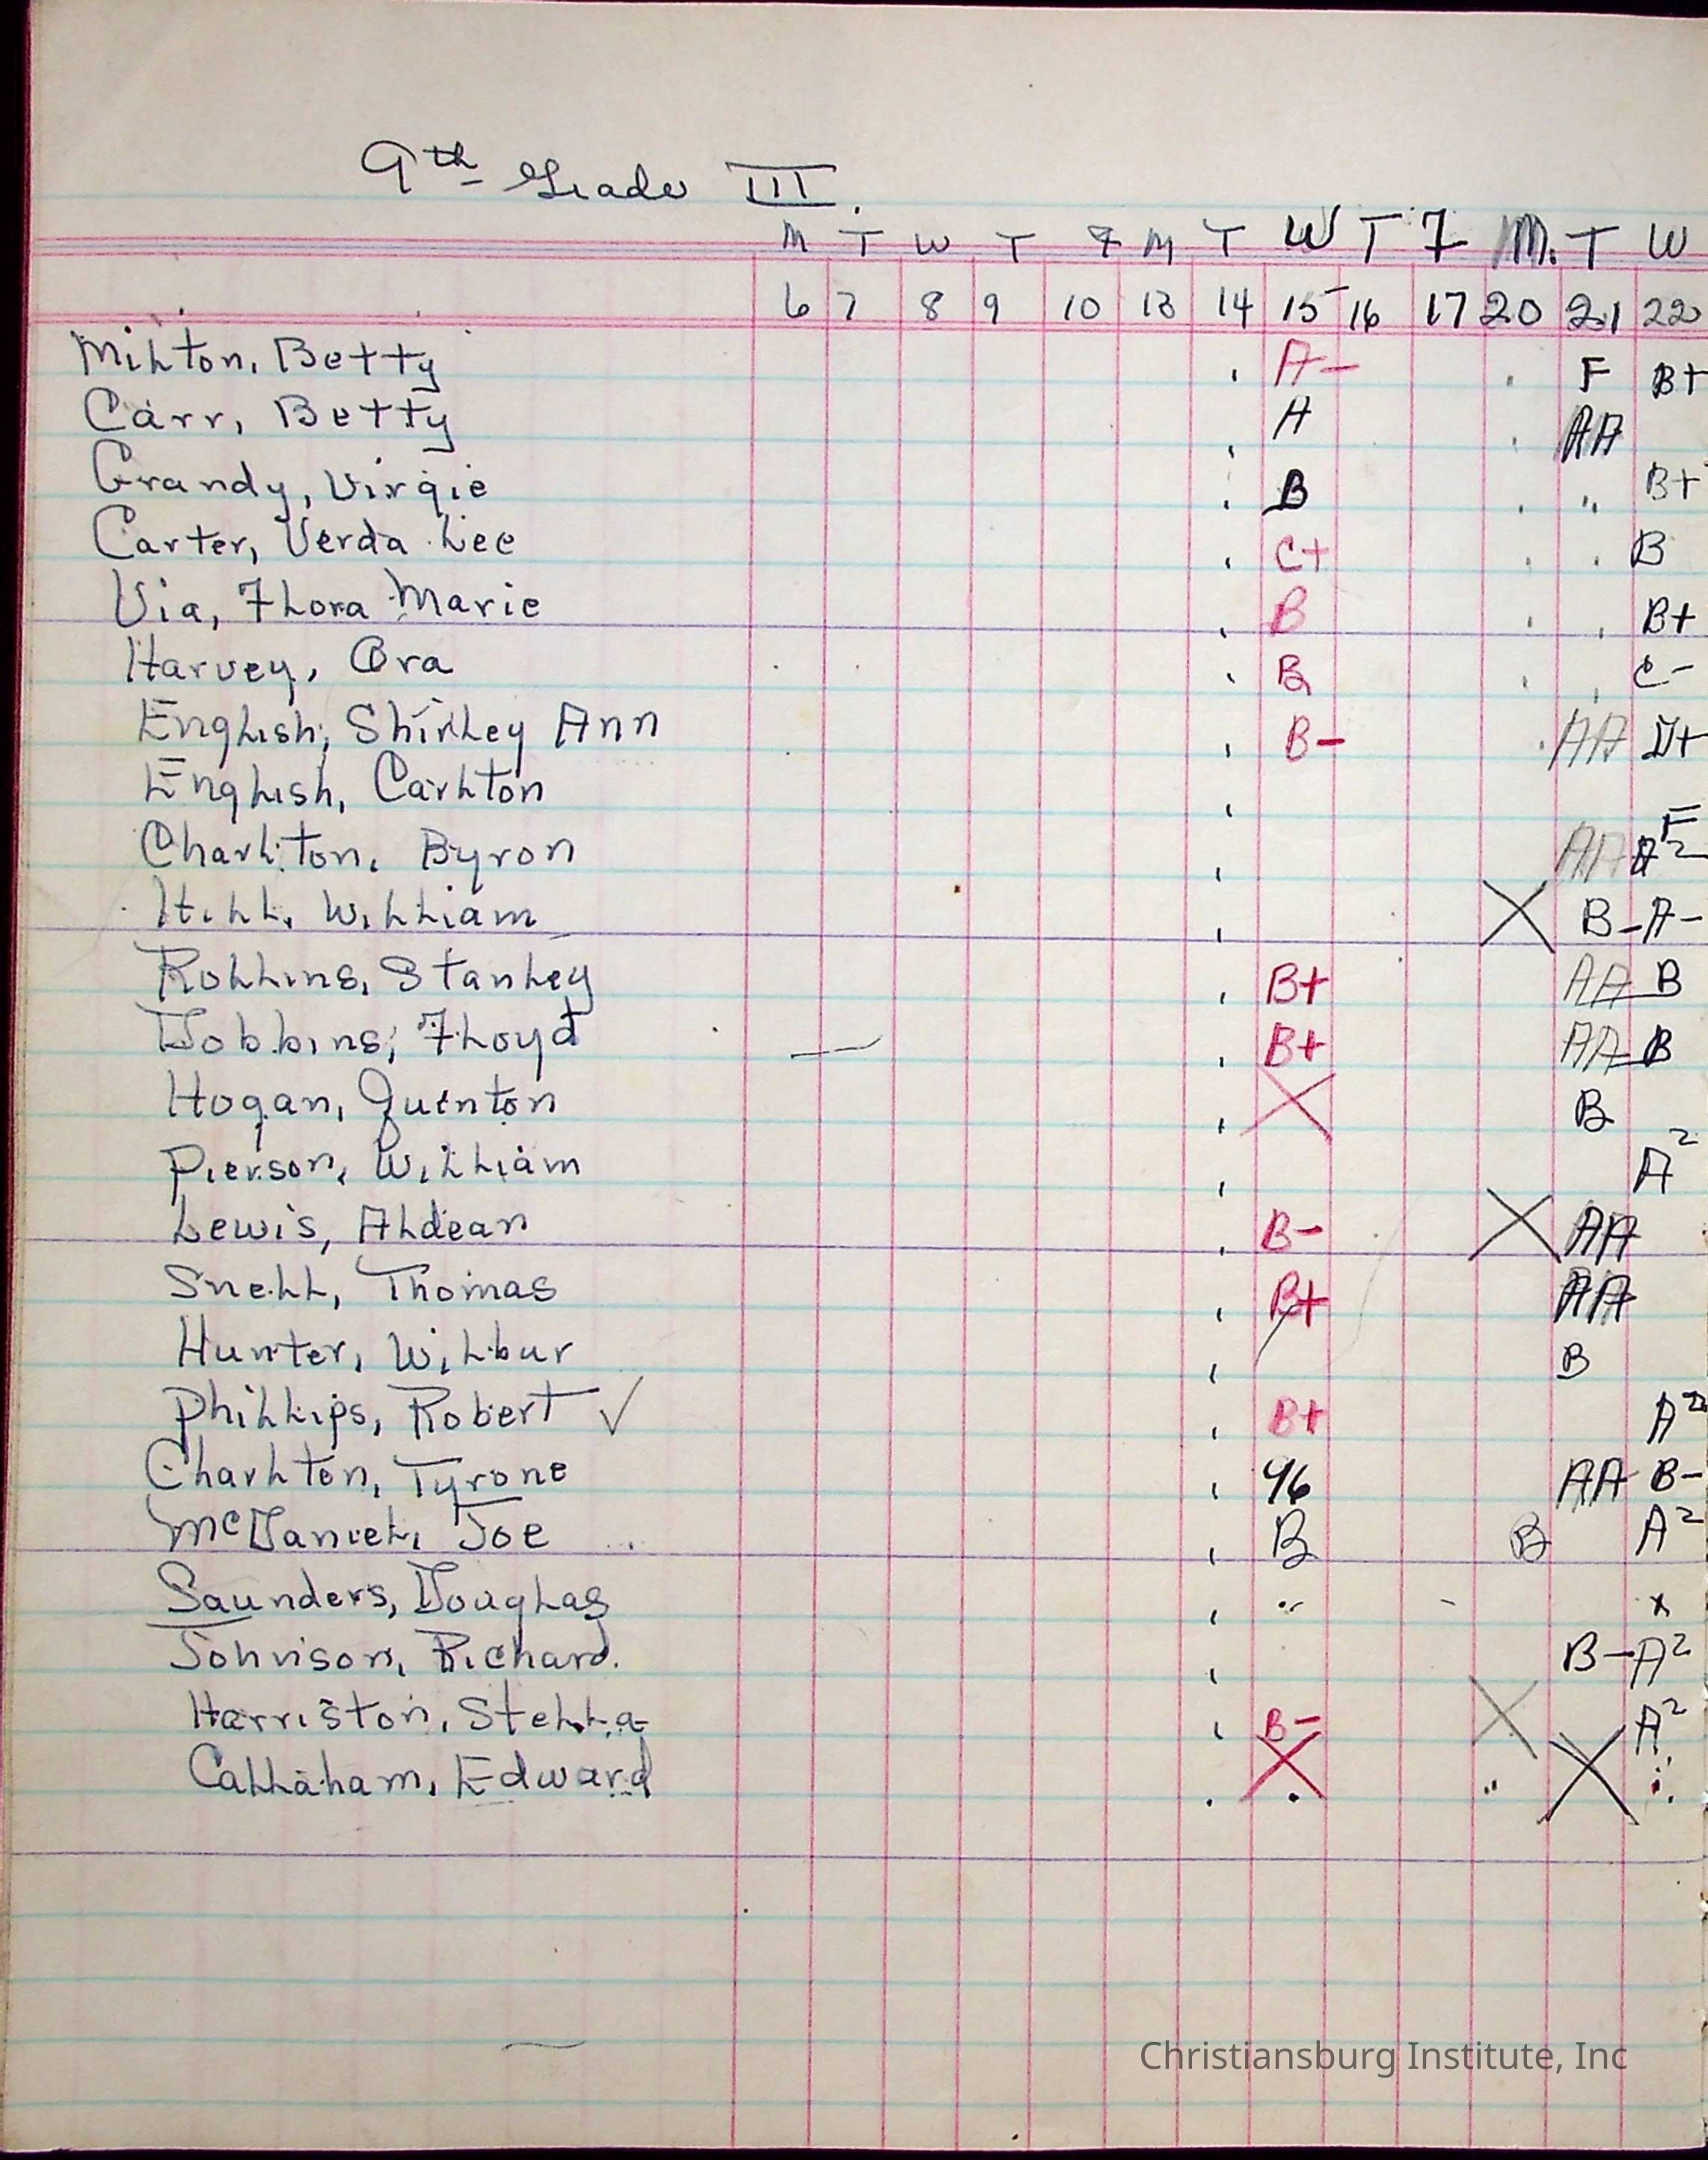 9th Grade III.
M T W T F M T W T F M. T W
6 7 8 9 10 13 14 15 16 17 20 21 22
Milton, Betty A- F B+
Carr, Betty A AA
Grandy, Virgie B " B+
Carter, Verda Lee C+ B
Via, Flora Marie B B+
Harvey, Ora B C-
English, Shirley Ann B- AA D+
English, Carlton
Charlton, Byron AA F
Hill, William X B- A-
Rollins, Stanley B+ AA B
Dobbins, Floyd B+ AA B
Hogan, Quinton X B
Pierson, William A2
Lewis, Aldean B- X AA
Snell, Thomas B+ AA
Hunter, Wilbur B
Phillips, Robert ✓ B+ A2
Charlton, Tyrone 96 AA B-
McDaniel, Joe B B A2
Saunders, Douglas x
Johnson, Richard. B- A2
Harriston, Stella B- X A2
Callaham, Edward X " X
Christiansburg Institute, Inc